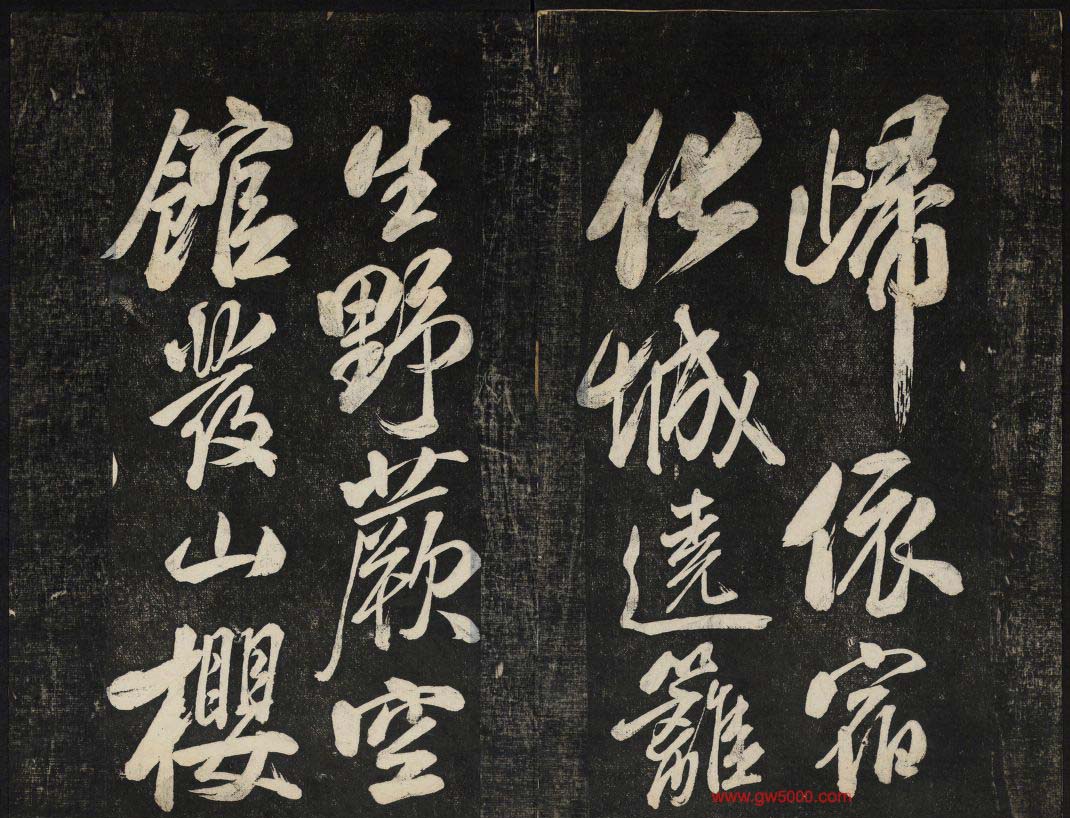 歸依宿
化城遶籬
生野蕨空
館發山櫻
www.gw5000.com